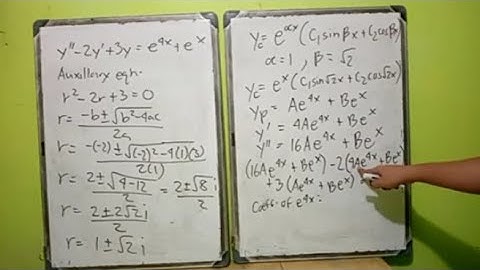 y''-2y'+3y = e^4x + e^x
Auxillary eqn.
r²-2r+3=0
r = -b±√b²-4ac / 2a
r = -(-2)±√(-2)²-4(1)(3) / 2(1)
r = 2±√4-12 / 2 = 2±√8 i / 2
r = 2±2√2 i / 2
r = 1±√2 i
Yc = e^αx (C1 sinβx + C2 cosβx)
α=1, β=√2
Yc = e^x (C1 sin√2x + C2 cos√2x)
Yp = Ae^4x + Be^x
y' = 4Ae^4x + Be^x
y'' = 16Ae^4x + Be^x
(16Ae^4x + Be^x) -2(4Ae^4x + Be^x)
+3(Ae^4x + Be^x)
Coeff. of e^4x: